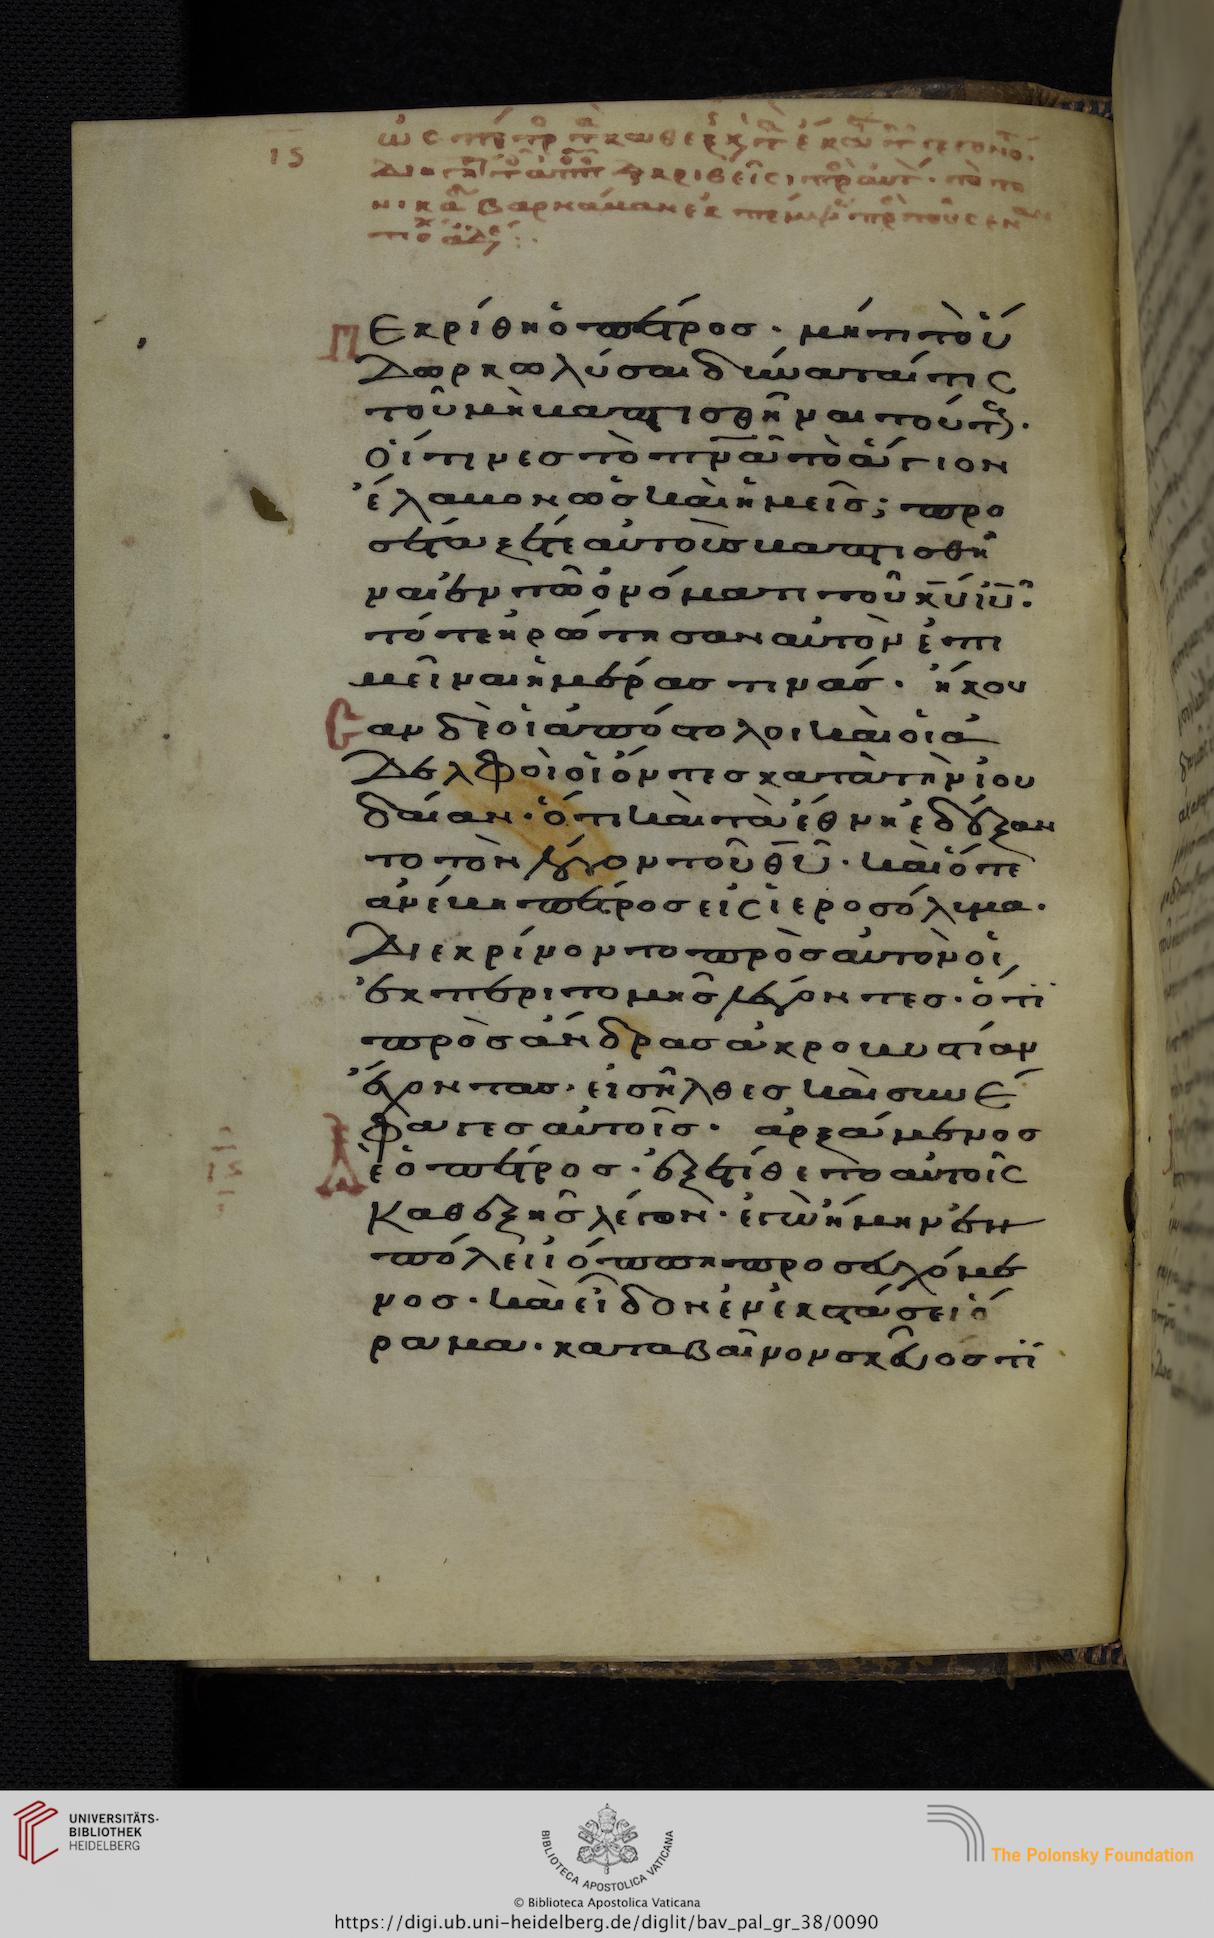 ιε
Π
Εκρίθη ὁ πέτρος · μήτι τὸ ὕ
Δωρ κωλύσαι δύναταί τις
τοῦ μὴ βαπτισθῆναι τούτους ·
οἵτινεσ τὸ πνᾶ τὸ ἅγιον
ἔλαβον ὡσ καὶ ἡμεῖσ ; προ
σέταξέ τε αὐτοὺσ βαπτισθῆ
ναι ἐν τῶ ὀνόματι τοῦ κ̅υ̅ ι̅υ̅ ·
τότε ἠρώτησαν αὐτὸν ἐπι
μεῖναι ἡμέρασ τινάσ · ἤκου
Cαν δὲ οἱ ἀπόστολοι καὶ οἱ ἀ
Δελφοὶ οἱ ὄντεσ κατὰ τὴν ἰου
δαίαν · ὅτι καὶ τὰ ἔθνη ἐδέξαν
το τὸν λόγον τοῦ θ̅υ̅ · καὶ ὅτε
ἀνέβη πέτροσ εἰς ἱεροσόλυμα ·
Διεκρίνοντο πρὸσ αὐτὸν οἱ
ἐκ περιτομῆσ λέγοντεσ · ὅτι
πρὸσ ἄνδρασ ἀκροβυστίαν
ἔχοντασ · εἰσῆλθεσ καὶ συνέ
φαγεσ αὐτοῖσ · ἀρξάμενοσ
Δὲ ὁ πέτροσ · ἐξετίθετο αὐτοῖς
Καθεξῆσ λέγων · ἐγὼ ἤμην ἐν
πόλει ἰόππη προσευχόμε
νοσ · καὶ εἶδον ἐν ἐκστάσει ὅ
ραμα · καταβαῖνον σκεῦοσ τι
UNIVERSITÄTS-
BIBLIOTHEK
HEIDELBERG
BIBLIOTECA APOSTOLICA VATICANA
The Polonsky Foundation
© Biblioteca Apostolica Vaticana
https://digi.ub.uni-heidelberg.de/diglit/bav_pal_gr_38/0090